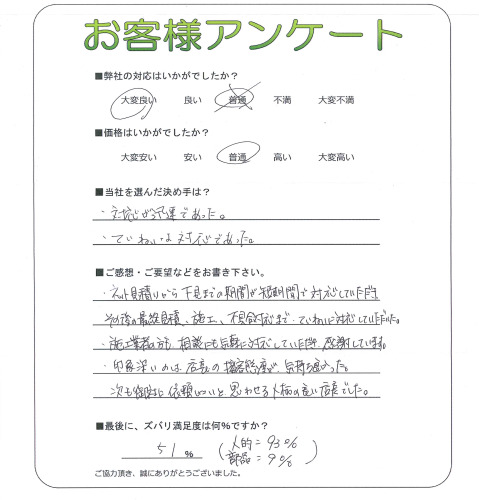 お客様アンケート
■弊社の対応はいかがでしたか？
大変良い 良い 普通 不満 大変不満
■価格はいかがでしたか？
大変安い 安い 普通 高い 大変高い
■当社を選んだ決め手は？
・対応が迅速であった。
・ていねいな対応であった。
■ご感想・ご要望などをお書き下さい。
・ネット見積りから下見までの期間が短期間で対応していただき、
その後の最終見積、施工、不具合対応まで、ていねいに対応していただいた。
・施工業者の方も、相談にも気軽に対応していただき、感謝しています。
・印象深いのは店長の接客態度が、気持ち良かった。
次も御社に依頼したいと思わせる人柄の良い店長でした。
■最後に、ズバリ満足度は何％ですか？
51 % (人的＝93% 
部品＝9%)
ご協力頂き、誠にありがとうございました。